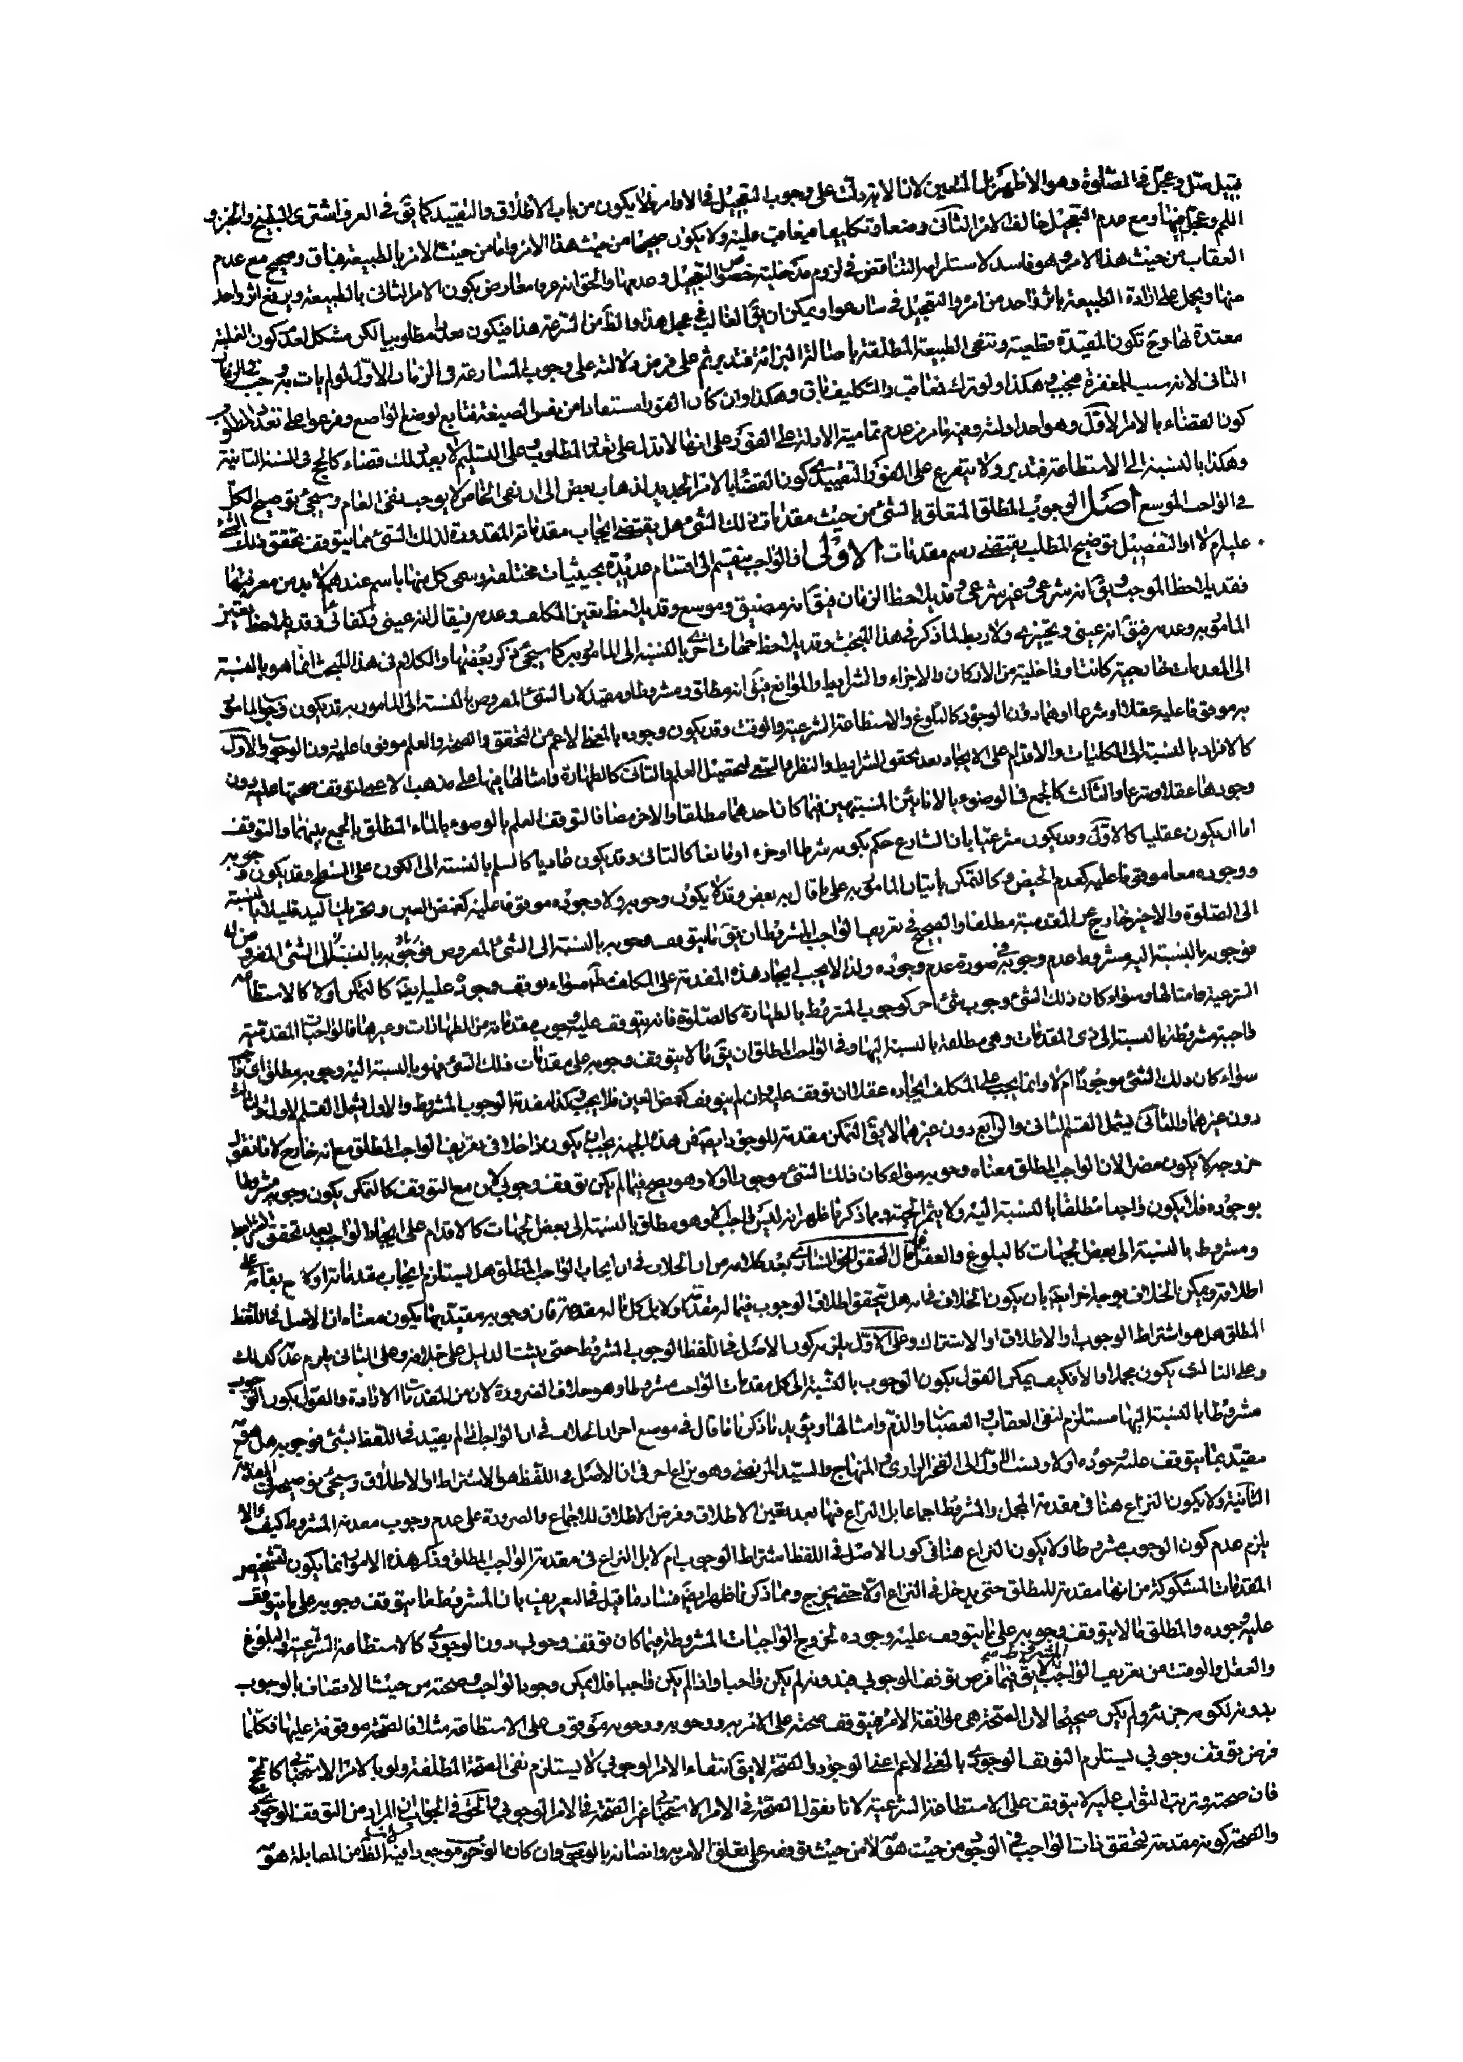 قبيل صل وعجل في الصلوة وهو الاظهر بل المتعين لانا لا نرد دلت على وجوب التعجيل في الاوامر لا يكون من باب الاطلاق والتقييد كما يق في العرف اشترى البطيخ والخبز و
اللحم وعجل فيها ومع عدم التعجيل خالف الامر الثاني وضعا وتكليفا فيعاقب عليه ولا يكون صحيحا من حيث هذا الامر واما من حيث الامر بالطبيعة فباق وصحيح مع عدم
العقاب من حيث هذا الامر وهو فاسد لاستلزامه التناقض في لزوم مدخلية خصوص التعجيل وعدمها والحق انه عرفا مفاد ض يكون الامر الثاني بالطبيعة ويرفع اثر واحد
منها ويحمل على ارادة الطبيعة باثر واحد من امر والتعجيل في سان هوا ويمكن ان يق الغالب في عجل هذا والظ من الشرعية هذا فيكون مطلوبيا لكن مشكل لعدم كون الغلبة
معتدة لها وح تكون المقيدة قطعية وتنفى الطبيعة المطلقة باصالة البرائة فتدبر ثم على فرض دلالته على وجوب المسارعة في الزمان الاول لو لم يات به وجب في الزمان
الثاني لانه سبب للمغفرة فيجب وهكذا ولو ترك فعاقب والتكليف باق وهكذا وان كان الفور المستفاد من نفس الصيغة فتابع لوضع الواضع وفرعوا على تعدد المطلوب
كون القضاء بالامر الاول وهو احد ادلته وفيه ما مر من عدم تمامية الادلة على الفور وعلى انها لا تدل على تعدد المطلوب وعلى التسليم لا بعد ذلك قضاء كالحج في السنة الثانية
وهكذا بالنسبة الى الاستطاعة فتدبر ولا يتفرع على الفور والتقييد كون القضاء بالامر الجديد لذهاب بعض الى ان نفى الخاص لا يوجب نفى العام وسيجئ توضيح الكل
في الواجب الموسع اصل الوجوب المطلق المتعلق بالشئ من حيث مقدمات ذلك الشئ هل يقتضى ايجاب مقدماته المقدورة لذلك الشئ مما يتوقف تحقق ذلك الشئ
عليه ام لا او التفصيل توضيح المطلب يقتضى رسم مقدمات الاولى ان الواجب ينقسم الى اقسام عديدة بحيثيات مختلفة وسمى كل منها باسم عندهم لا بد من معرفتها
فقد يلاحظ الموجب ويق انه شرعى وغير شرعى وقد يلاحظ الزمان فيق انه مضيق وموسع وقد يلاحظ تعين المكلف وعدمه فيقال انه عينى وكفائى وقد يلاحظ تعين
المامور به وعدمه فيق انه عينى وتخييرى ولا ربط لما ذكر في هذا المبحث وقد يلاحظ جهات اخرى بالنسبة الى المامور به كما سيجئ ذكر بعضها والكلام في هذا المبحث انما هو بالنسبة
الى المقدمات خارجية كانت او داخلية من الاركان والاجزاء والشرايط والموانع فيق انه مطلق ومشروط او مقيد لان الشئ المفروض بالنسبة الى المامور به قد يكون وجوب المامور
به موقوفا عليه عقلا او شرعا او هما دون الوجود كالبلوغ والاستطاعة الشرعية والوقت وقد يكون وجوده بالمعنى الاعم من التحقق والصحة والعلم موقوفا عليه دون الوجوب والاول
كالافراد بالنسبة الى الكليات والاقدام على الايجاد بعد تحقق الشرايط والنظر والتتبع لتحصيل العلم والثاني كالطهارة وامثالها فيها على مذهب الاعمى لتوقف صحتها عليه دون
وجودها عقلا وشرعا والثالث كالجمع في الوضوء بالانائين المشتبهين فيما كان احدهما مطلقا والاخر مضافا لتوقف العلم بالوضوء بالماء المطلق بالجمع بينهما والتوقف
اما ان يكون عقليا كالاول وقد يكون شرعيا بان الشارع حكم بكونه شرطا او جزء او مانعا كالثاني وقد يكون عاديا كالسلم بالنسبة الى الكون على السطح وقد يكون وجوبه
ووجوده معا موقوفا عليه كعدم الحيض وكالتمكن باتيان المامور به على ما قال به بعض وقد لا يكون وجوبه ولا وجوده موقوفا عليه كغمض العين وتحريك اليد قليلا بالنسبة
الى الصلوة والاخير خارج عن المقدمية مطلقا والصحيح في تعريف الواجب المشروط ان يق ما يتوقف وجوبه بالنسبة الى الشئ المفروض فوجوبه بالنسبة الى الشئ المفروض
فوجوبه بالنسبة اليه مشروط عدم وجوبه في صورة عدم وجوده ولذا لا يجب ايجاد هذه المقدمة على المكلف مط سواء توقف وجوده عليه ايض كالتمكن او لا كالاستطاعة
الشرعية وامثالها وسواء كان ذلك الشئ وجوب شئ اخر كوجوب المشروط بالطهارة كالصلوة فانه يتوقف عليه وجوب مقدماته من الطهارات وغيرها فالواجبات المقدمية
واجبة مشروطة بالنسبة الى ذى المقدمات وهى مطلقة بالنسبة اليها وفى الواجب المطلق ان يق ما لا يتوقف وجوبه على مقدمات ذلك الشئ فهو بالنسبة اليه وجوبه مطلق
سواء كان ذلك الشئ موجودا ام لا وانما يجب على المكلف ايجاده عقلا ان توقف عليه وان لم يتوقف كغمض العين فلا يجب وكذا مقدمة الوجوب المشروط والاول يشمل القسم الاول والثالث
دون غيرهما والثاني يشمل القسم الثاني والرابع دون غيرهما لا يق التمكن مقدمة للوجود ايض فمن هذه الجهة يجب ان يكون داخلا في تعريف الواجب المطلق مع انه خارج لانا نقول
خروجه لا يكون مضرا لان الواجب المطلق معناه وجوبه سواء كان ذلك الشئ موجودا او لا وهو يصح فيما لم يكن توقف وجوبى لكن مع التوقف كالتمكن يكون وجوبه مشروطا
بوجوده فلا يكون واجبا مطلقا بالنسبة اليه ولا يثمر الجهة ومما ذكرنا ظهر انه ليس واجب الا وهو مطلق بالنسبة الى بعض الجهات كالاقدام على ايجاد الواجب بعد تحقق الشرايط
ومشروط بالنسبة الى بعض الجهات كالبلوغ والعقل قال المحقق الخوانسارى بعد كلامه من ان الخلاف في ان ايجاب الواجب المطلق هل يستلزم ايجاب مقدماته او لا مع بقائه على
اطلاقه ويمكن الخلاف بوجه اخر ايض بان يكون الخلاف في انه هل يتحقق اطلاق الوجوب فيما له مقدمة او لا بل كل ما له مقدمة فان وجوبه مقيد بها يكون معناه ان الاصل في اللفظ
المطلق هل هو اشتراط الوجوب او الاطلاق او الاشتراك وعلى الاول يلزم كون الاصل في اللفظ الوجوب المشروط حتى يثبت الدليل على خلافه وعلى الثاني يلزم عدم كذلك
وعلى الثالث يكون مجملا والا فكيف يمكن القول بكون الوجوب بالنسبة الى كل مقدمات الواجب مشروطا وهو خلاف الضرورة لان من المقدمات الارادة والقول بكون الوجوب
مشروطا بالنسبة اليها مستلزم لنفى العقاب والعصيان والذم وامثالها ويؤيد ما ذكرنا ما قال في موضع اخر ان الخلاف في ان الواجب اذا لم يقيد في اللفظ بشئ فوجوبه هل هو
مقيد بما يتوقف عليه وجوده او لا ونسب الاول الى الفخر الرازى والمنهاج والسيد المرتضى وهو نزاع اخر في ان الاصل في اللفظ هو الاشتراط او الاطلاق وسيجئ توضيحه في المقدمة
الثانية ولا يكون النزاع هنا في مقدمة المجمل والمشروط اجماعا بل النزاع فيها بعد تعين الاطلاق وفرض الاطلاق للاجماع والضرورة على عدم وجوب مقدمة المشروط كيف والا
يلزم عدم كون الوجوب مشروطا ولا يكون النزاع هنا في كون الاصل في اللفظ اشتراط الوجوب ام لا بل النزاع في مقدمة الواجب المطلق وذكر هذه الامور انما يكون لتشخيص
المقدمات المشكوكة من انها مقدمة للمطلق حتى يدخل في النزاع او لا حتى يخرج ومما ذكرنا ظهر ايض فساد ما قيل في التعريف بان المشروط ما يتوقف وجوبه على ما يتوقف
عليه وجوده والمطلق ما لا يتوقف وجوبه على ما يتوقف عليه وجوده لخروج الواجبات المشروطة فيما كان توقف وجوبى دون الوجودى كالاستطاعة الشرعية والبلوغ
والعقل والوقت من تعريف الواجب المشروط لا يق فيما فرض توقف الوجوبى فبدونه لم يكن واجبا واذا لم يكن واجبا فلا يمكن وجود الواجب وصحته من حيث الاتصاف بالوجوب
بدونه لكونه جزئه ولم يكن صحيحا لان الصحة هى موافقة الامر فيتوقف صحته على الامر به ووجوبه ووجوبه موقوف على الاستطاعة مثلا فالصحة موقوفة عليها فكلما
فرض توقف وجوبى يستلزم التوقف الوجودى بالمعنى الاعم اعنى الوجود والصحة لا يق انتفاء الامر الوجوبى لا يستلزم نفى الصحة المطلقة ولو بالامر الاستحبابى كالحج
فان صحته وترتب الثواب عليه لا يتوقف على الاستطاعة الشرعية لانا نقول الصحة في الامر الاستحبابى غير الصحة في الامر الوجوبى والحق في الجواب ان المراد من التوقف الوجودى
والصحة كونه مقدمة لتحقق ذات الواجب في الوجود من حيث هو لا من حيث توقفه على تعلق الامر به واتصافه بالوجوب وان كان الوجوب موجودا فيه الظ من المقابلة هو